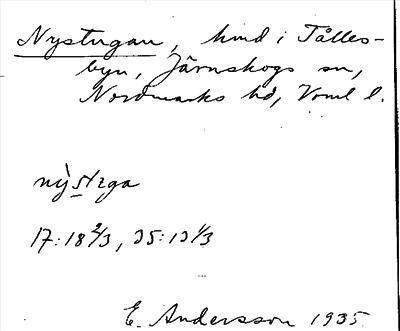 Nystugan, hmd i Tålles-
byn, Järnskogs sn,
Nordmarks hd, Vrml l.
17:18 2/3, 25:13 1/3
E. Andersson 1935